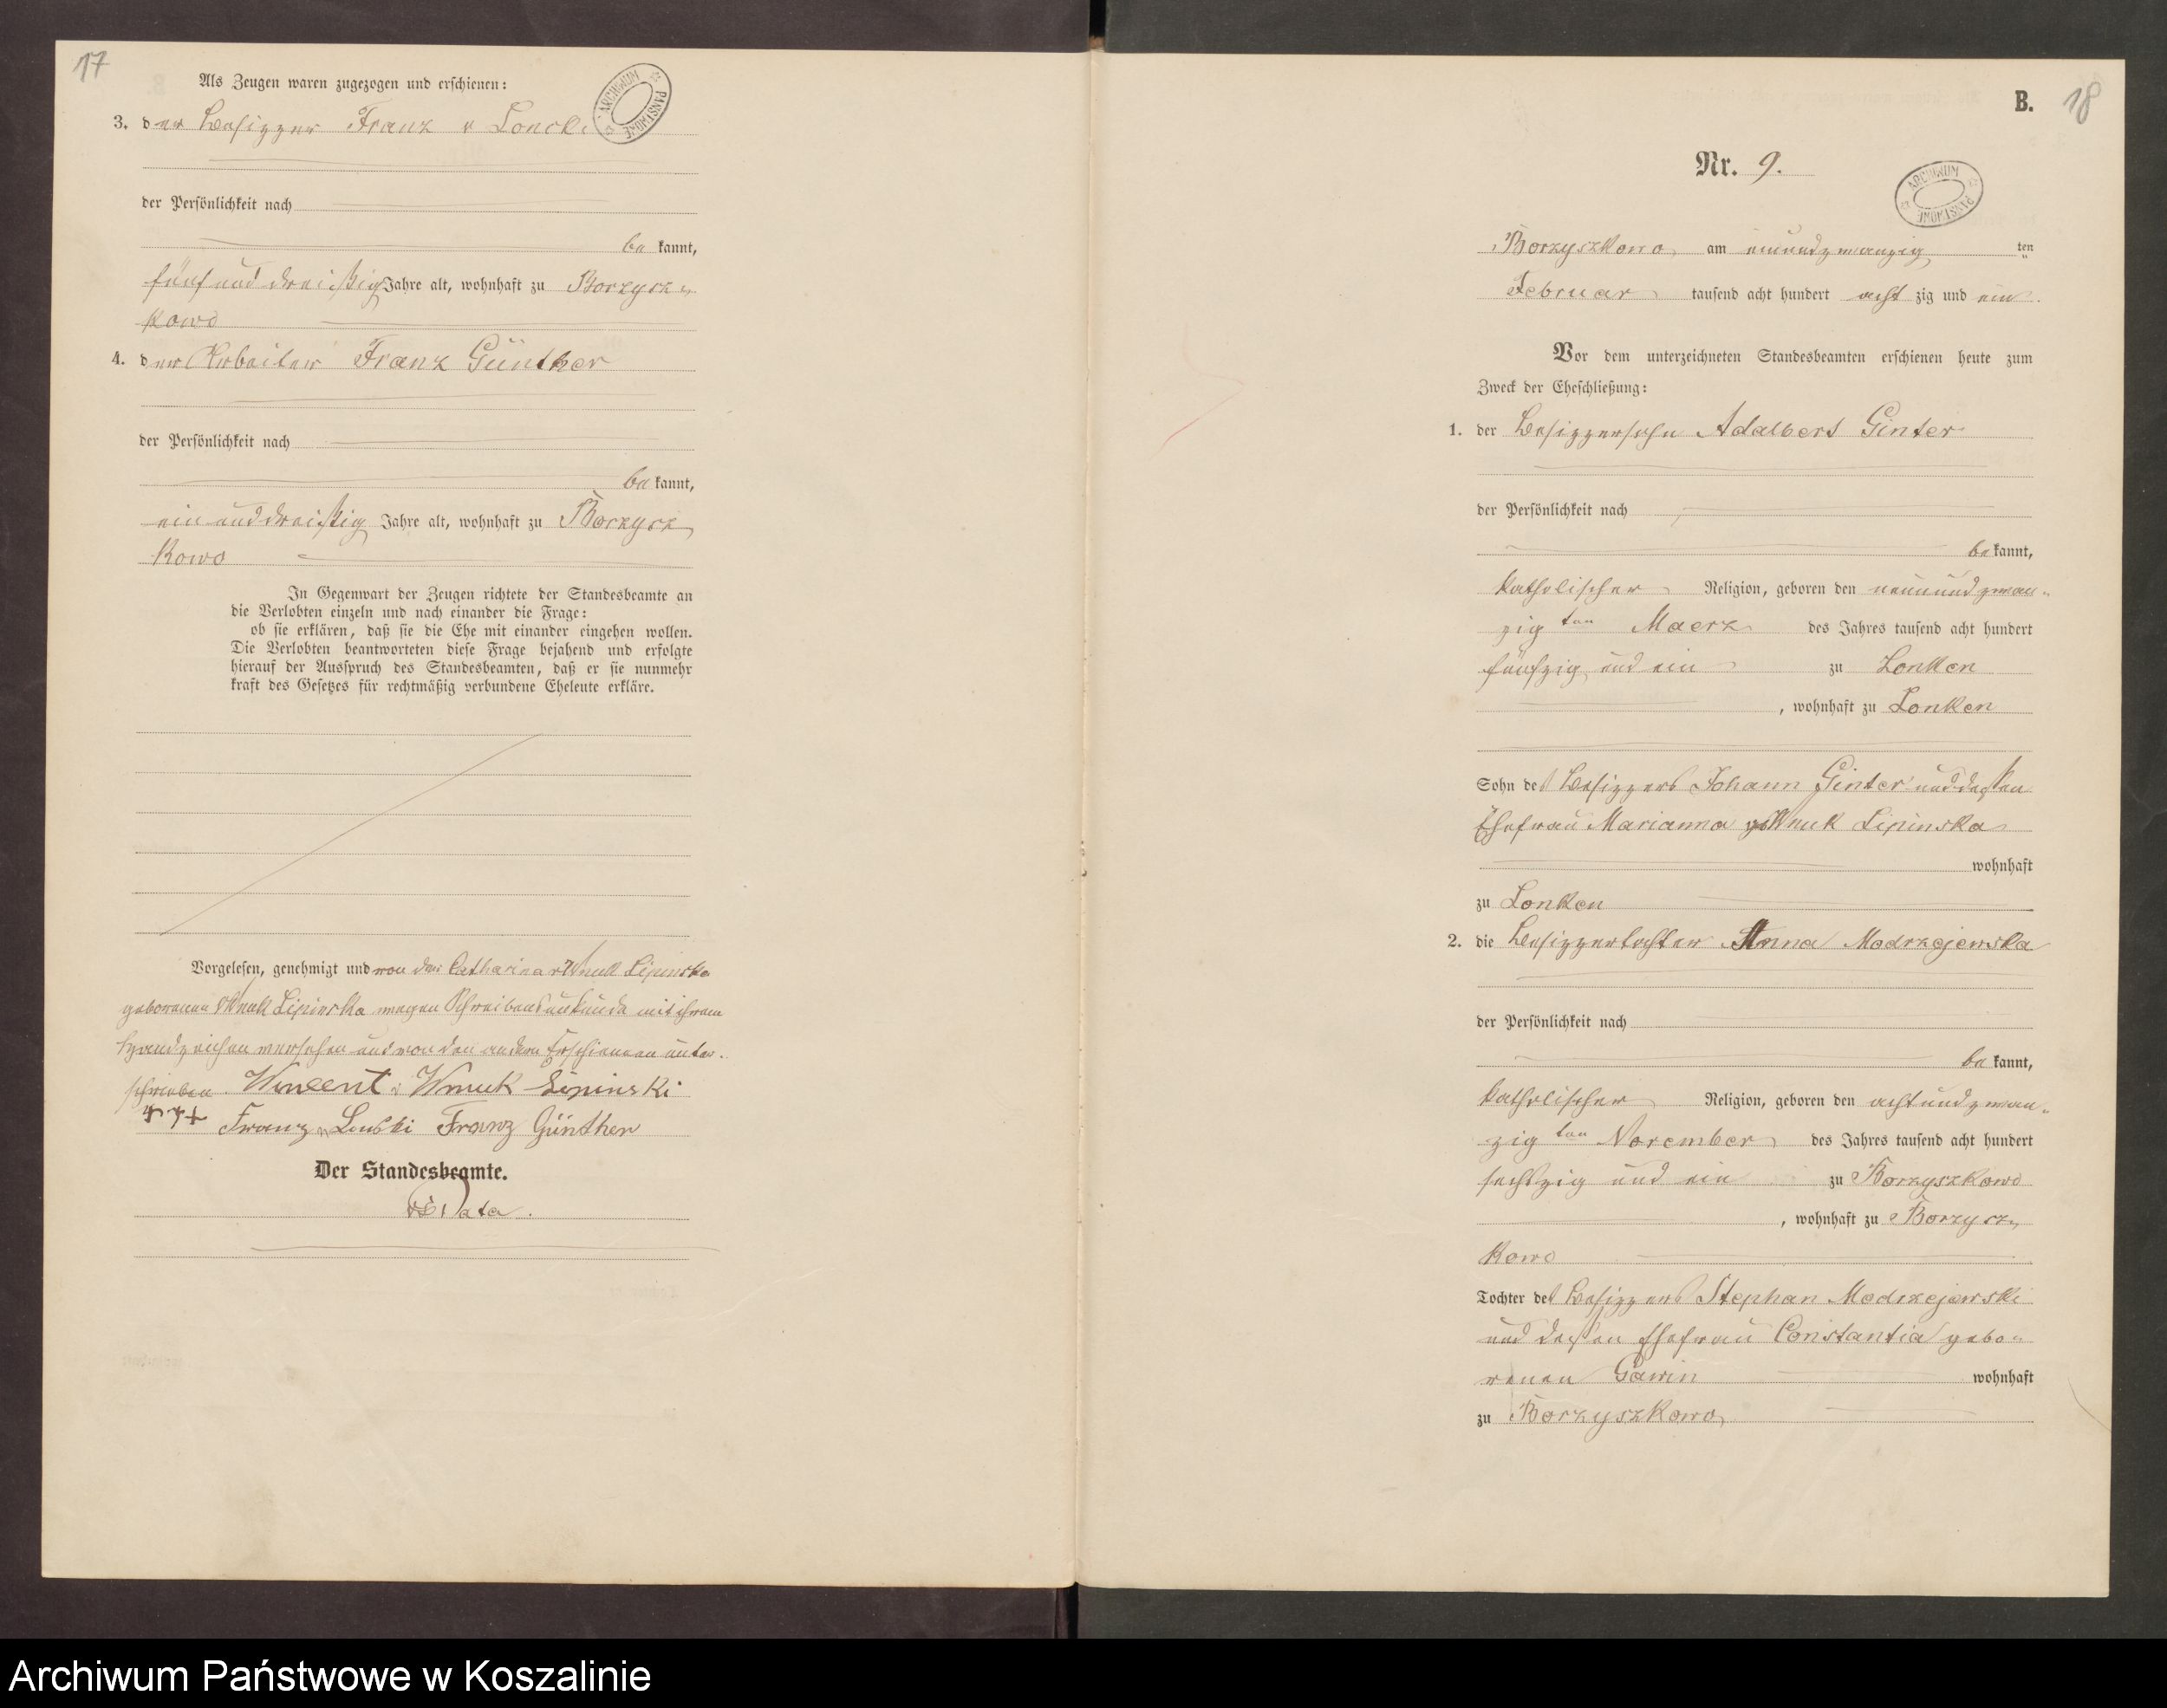 17
Als Zeugen waren zugezogen und erschienen:
ARCHIWUM PAŃSTWOWE
3. der Besizzer Franz v Loncki
der Persönlichkeit nach
be kannt,
fünf und dreißig Jahre alt, wohnhaft zu Borzysz-
kowo
4. der Arbeiter Franz Günther
der Persönlichkeit nach
be kannt,
ein und dreißig Jahre alt, wohnhaft zu Borzysz
kowo
In Gegenwart der Zeugen richtete der Standesbeamte an
die Verlobten einzeln und nach einander die Frage:
ob sie erklären, daß sie die Ehe mit einander eingehen wollen.
Die Verlobten beantworteten diese Frage bejahend und erfolgte
hierauf der Ausspruch des Standesbeamten, daß er sie nunmehr
kraft des Gesetzes für rechtmäßig verbundene Eheleute erkläre.
Vorgelesen, genehmigt und von der Catharina v Wnuk Lipinska
geborenen v Wnuk Lipinska wegen Schreibensunkunde mit ihrem
Handzeichen versehen und von den andern Erschienenen unter-
schrieben Vincent v Wnuk Lipinski
+++ Franz v Lonski Franz Günther
Der Standesbeamte.
Data.
B. 18
Nr. 9.
ARCHIWUM PAŃSTWOWE
Borzyszkowo am einundzwanzig ten
Februar tausend acht hundert acht zig und ein
Vor dem unterzeichneten Standesbeamten erschienen heute zum
Zweck der Eheschließung:
1. der Besizzersohn Adalbert Ginter
der Persönlichkeit nach
be kannt,
katholischer Religion, geboren den neunundzwan-
zig ten Maerz des Jahres tausend acht hundert
fünfzig und ein zu Lonken
, wohnhaft zu Lonken
Sohn des Besizzers Johann Ginter und dessen
Ehefrau Marianna Wnuk Lipinska
wohnhaft
zu Lonken
2. die Besizzertochter Anna Modrzejewska
der Persönlichkeit nach
be kannt,
katholischer Religion, geboren den achtundzwan-
zig ten November des Jahres tausend acht hundert
sechszig und ein zu Borzyszkowo
, wohnhaft zu Borzysz-
kowo
Tochter des Besizzers Stephan Modrzejewski
und dessen Ehefrau Constantia gebo-
renen Gawin wohnhaft
zu Borzyszkowo
Archiwum Państwowe w Koszalinie